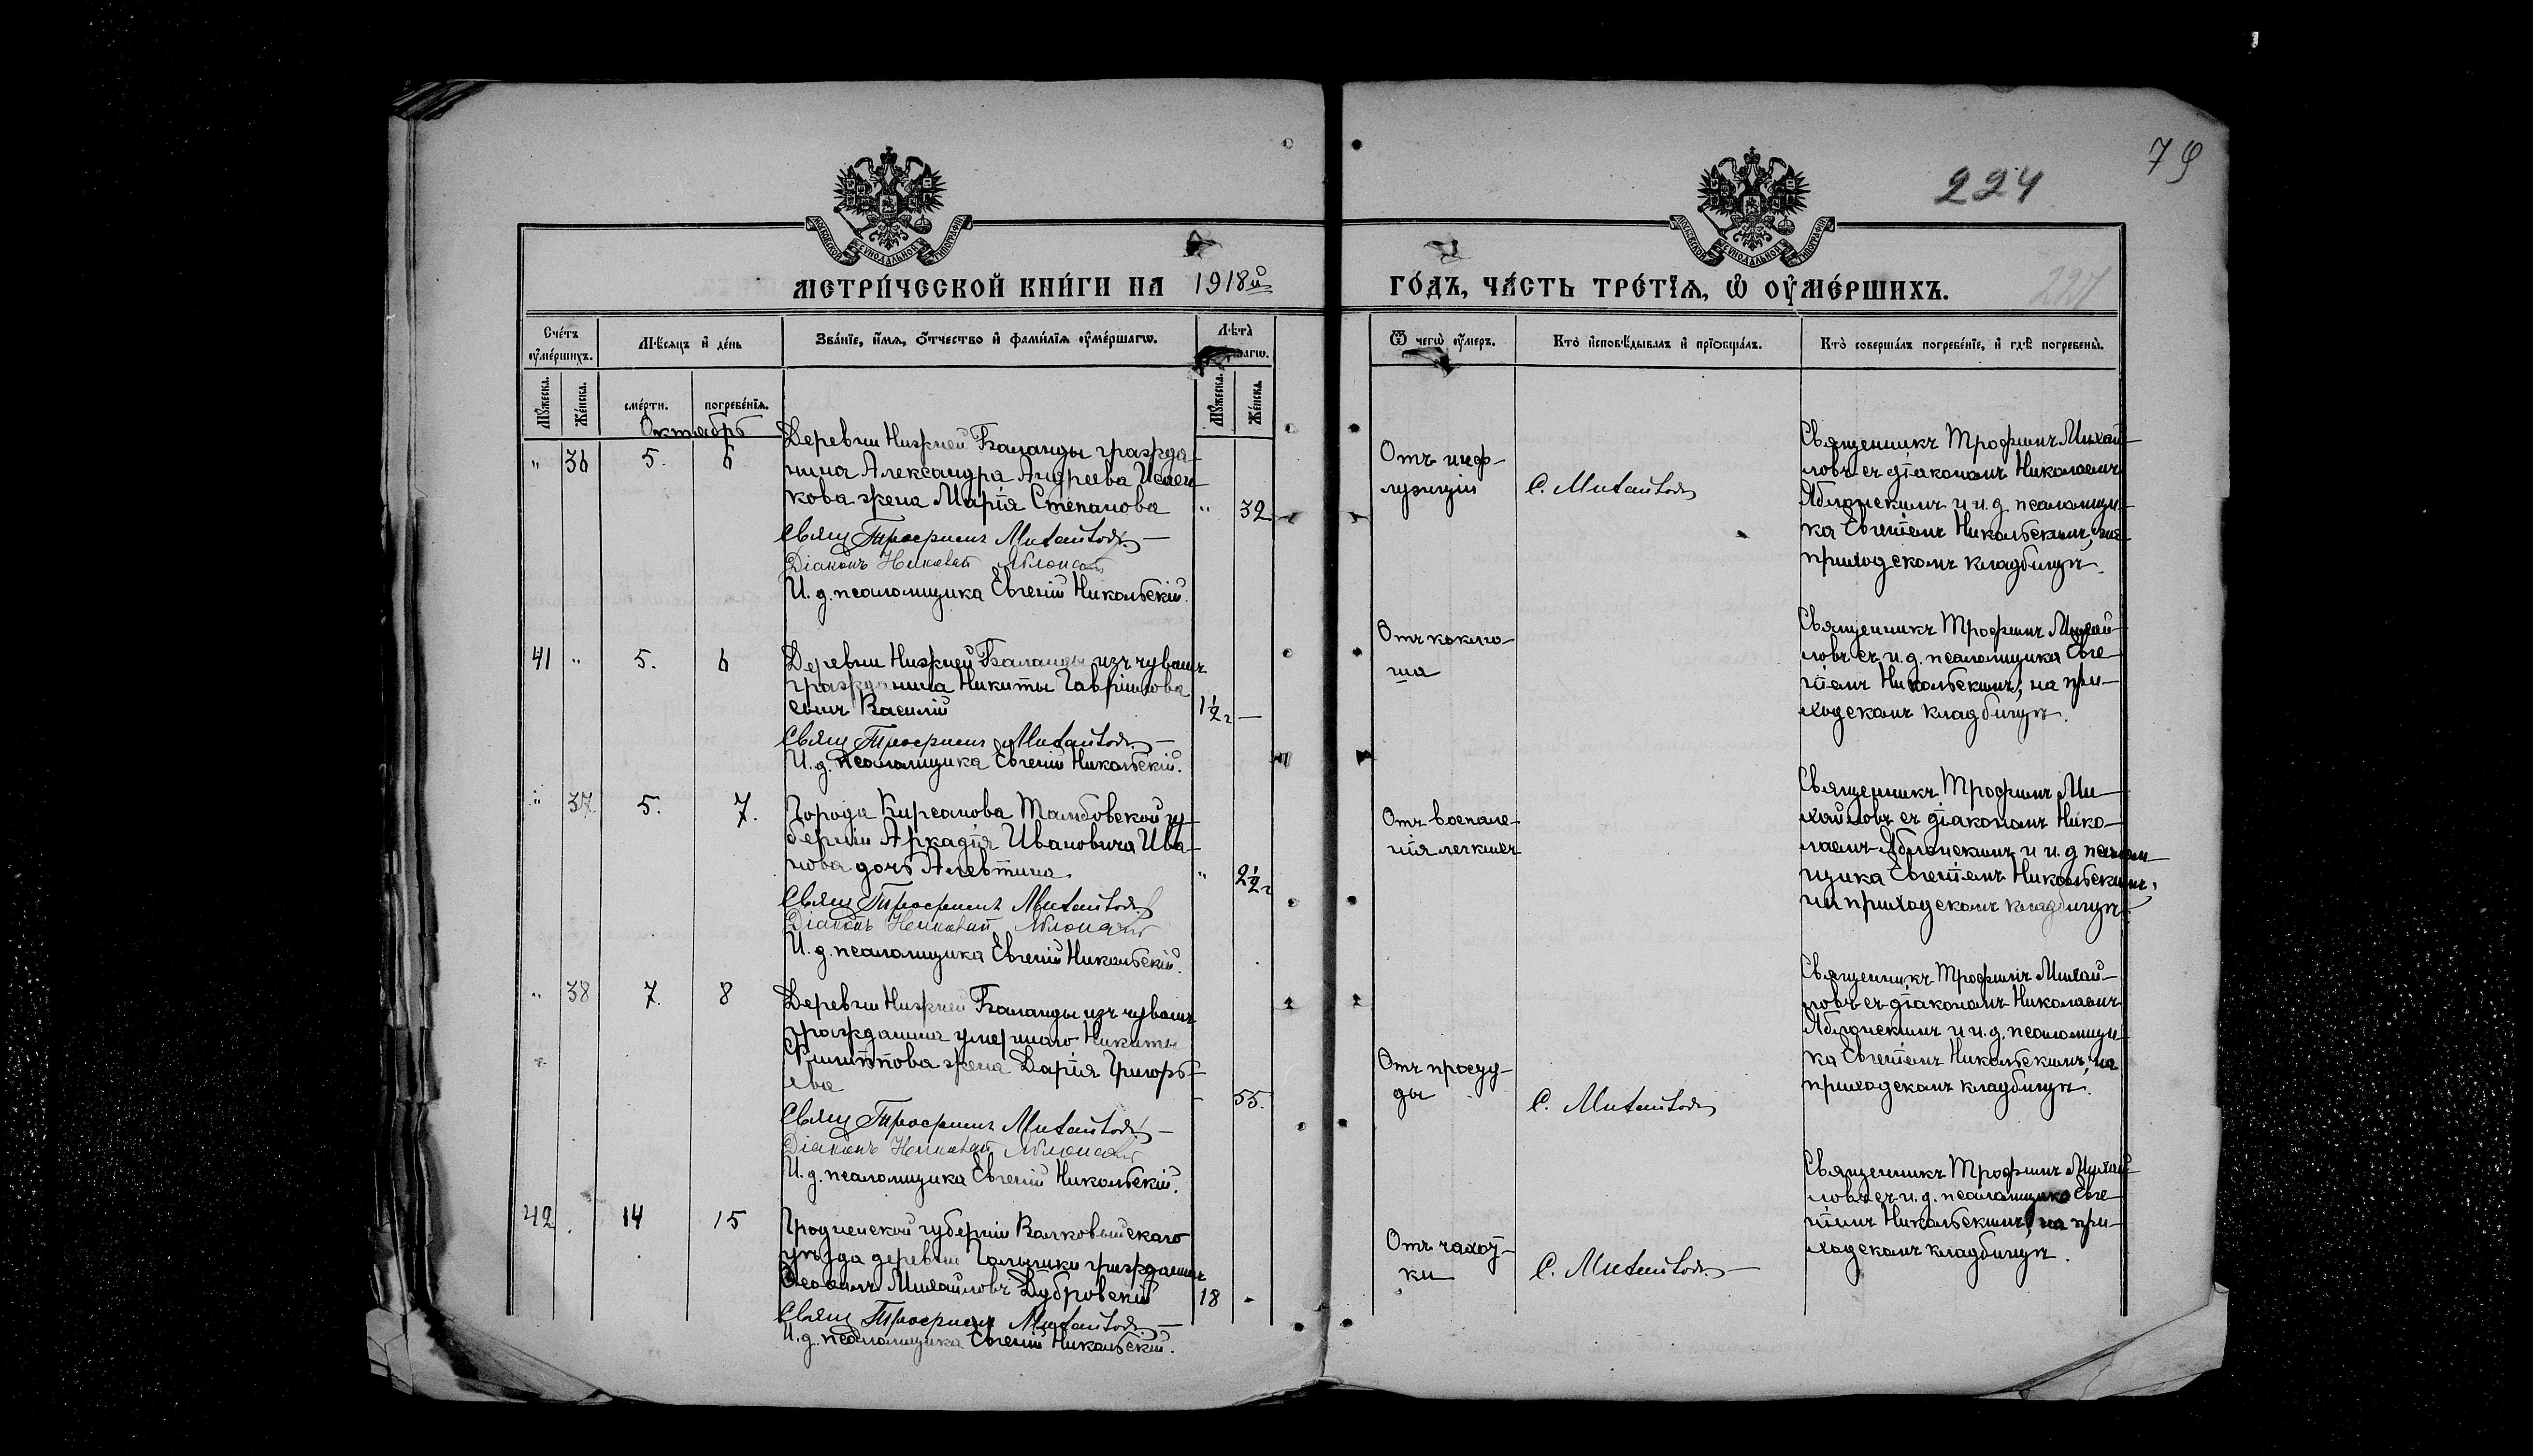 79
224
227
МОСКОВСКОЙ СѴНОДАЛЬНОЙ ТИПОГРАФІИ
МОСКОВСКОЙ СѴНОДАЛЬНОЙ ТИПОГРАФІИ
МЕТРИ́ЧЕСКОЙ КНИ́ГИ НА 1918й ГО́ДЪ, ЧА́СТЬ ТРЕ́ТІѦ, Ѡ҆ ОУ҆МЕ́РШИХЪ.
Сче́тъ оу҆ме́ршихъ.
Мѣсѧцъ и҆ де́нь
Зва́нїе, и҆́мѧ, ѻ҆́тчество и҆ фами́лїѧ оу҆ме́ршагѡ.
Лѣ́та
Ѿ чегѡ̀ оу҆́меръ.
Кто̀ и҆сповѣ́дывалъ и҆ прїѻбща́лъ.
Кто̀ соверша́лъ погребе́нїе, и҆ гдѣ̀ погребены̀.
Мꙋ́жеска.
Же́нска.
сме́рти.
погребе́нїѧ.
Мꙋ́жеска.
Же́нска.
Октябрь
" 36 5. 6
Деревни Нижней Баланды гражда-
нина Александра Андреева
кова жена Марія Степанова " 32
Свящ Трофимъ Михайловъ
Діаконъ Николай Яблонскій
И. д. псаломщика Евгеній Никольскій.
Отъ инф-
луэнціи
С. Михайловъ
Священникъ Трофимъ Михай-
ловъ съ діакономъ Николаемъ
Яблонскимъ и и. д. псаломщи-
ка Евгеніемъ Никольскимъ, на
приходскомъ кладбищѣ.
41 " 5. 6
Деревни Нижней Баланды изъ чувашъ
гражданина Никиты Гаврилова
сынъ Василій 1½ г —
Свящ Трофимъ Михайловъ
И. д. псаломщика Евгеній Никольскій.
Отъ коклю-
ша
Священникъ Трофимъ Михай-
ловъ съ и. д. псаломщика Евге-
ніемъ Никольскимъ, на при-
ходскомъ кладбищѣ.
" 37 5. 7.
Города Кирсанова Тамбовской гу-
берніи Аркадія Ивановича Ива-
нова дочь Алевтина " 2½ г
Свящ Трофимъ Михайловъ
Діаконъ Николай Яблонскій
И. д. псаломщика Евгеній Никольскій.
Отъ воспале-
нія легкихъ
Священникъ Трофимъ Ми-
хайловъ съ діакономъ Нико-
лаемъ Яблонскимъ и и. д псалом-
щика Евгеніемъ Никольскимъ,
на приходскомъ кладбищѣ.
" 38 7. 8
Деревни Нижней Баланды изъ чувашъ
гражданина умершаго Никиты
Филиппова жена Дарія Григорь-
ева 55.
Свящ Трофимъ Михайловъ
Діаконъ Николай Яблонскій
И. д. псаломщика Евгеній Никольскій.
Отъ просту-
ды
С. Михайловъ
Священникъ Трофимъ Михай-
ловъ съ діакономъ Николаемъ
Яблонскимъ и и. д. псаломщи-
ка Евгеніемъ Никольскимъ, на
приходскомъ кладбищѣ.
42 14 15
Гродненской губерніи Волковыйскаго
уѣзда деревни гражданинъ
Михайловъ Дубровскій 18
Свящ Трофимъ Михайловъ
И. д. псаломщика Евгеній Никольскій.
Отъ чахот-
ки
С. Михайловъ
Священникъ Трофимъ Михай-
ловъ съ и. д. псаломщика Евге-
ніемъ Никольскимъ, на при-
ходскомъ кладбищѣ.